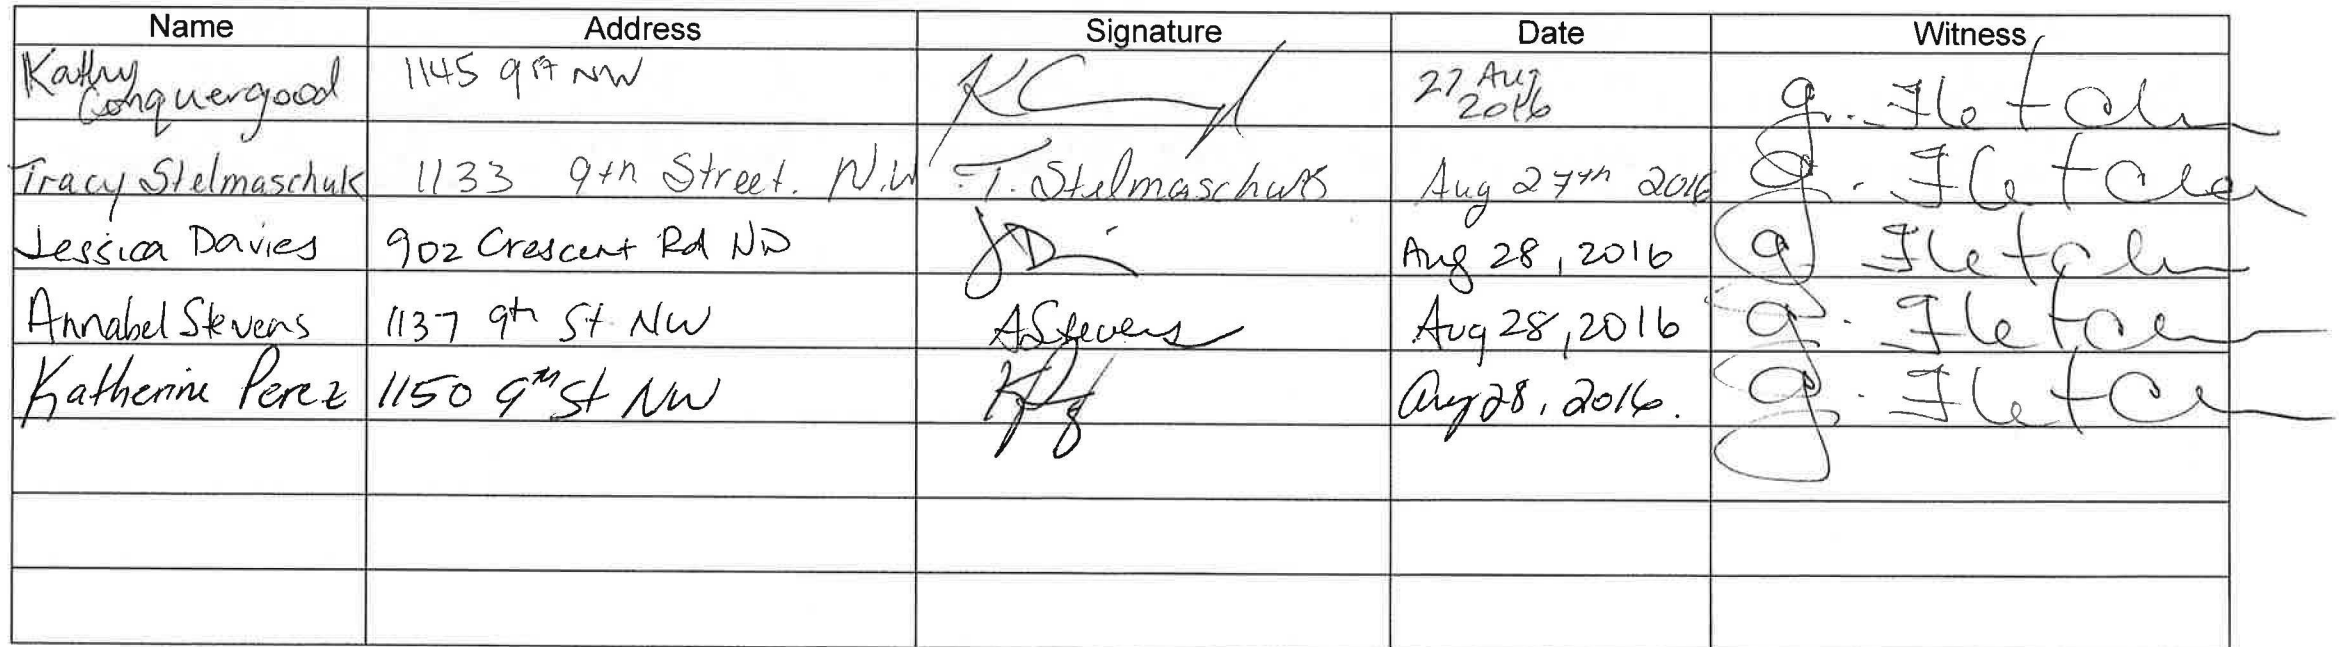 Name Address Signature Date Witness
Kathy Conquergood 1145 9 St NW 27 Aug 2016 g. Fletcher
Tracy Stelmaschuk 1133 9th Street. N.W T. Stelmaschuk Aug 27th 2016 g. Fletcher
Jessica Davies 902 Crescent Rd NW JD Aug 28, 2016 g Fletcher
Annabel Stevens 1137 9th St. NW AStevens Aug 28, 2016 g. Fletcher
Katherine Perez 1150 9th St NW Aug 28, 2016. g. Fletcher